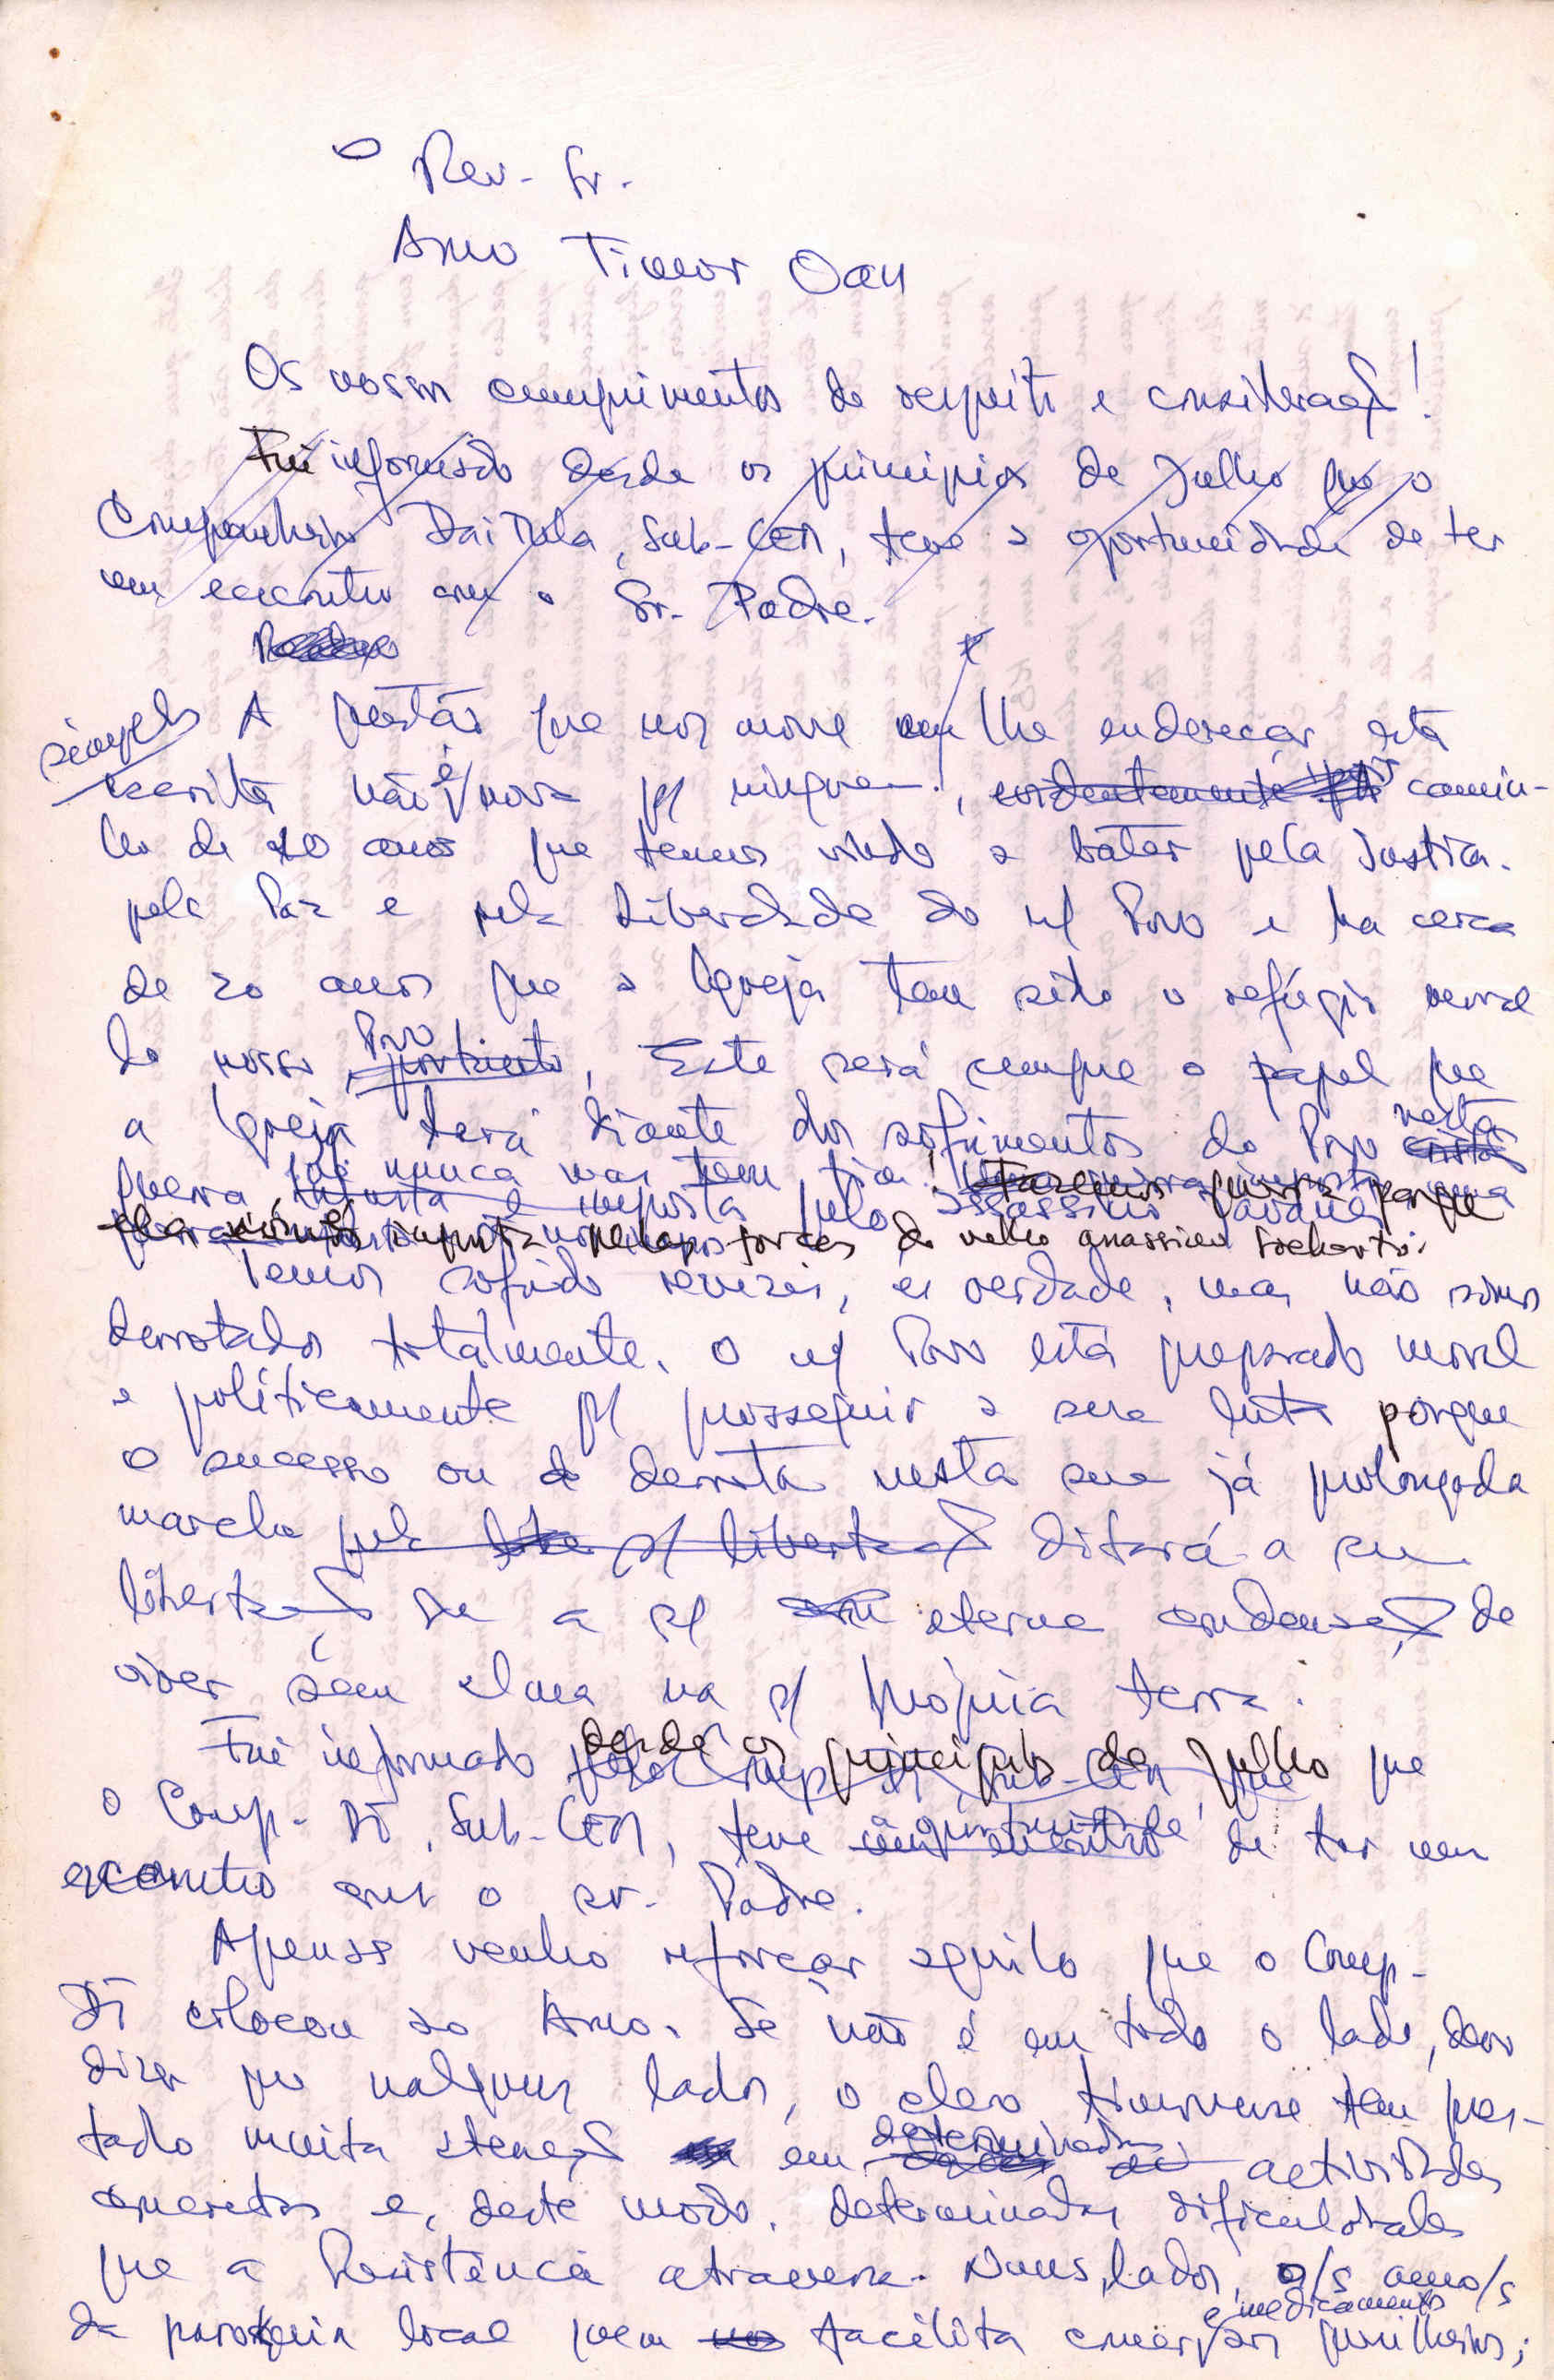 Rev. Sr.
Amo Timor Oan
Os nossos cumprimentos de respeito e consideração!
Fui informado desde os principios de Julho que o
Companheiro DaiTula, Sub-CEM, teve a oportunidade de ter
um encontro com o Sr. Padre.
A questão que nos move em lhe endereçar esta
simples
escrita não é nova p/ ninguem, camin-
ho de 20 anos que temos vindo a bater pela Justiça.
pela Paz e pela Liberdade do n/ Povo e ha cerca
de 20 anos que a Igreja tem sido o refúgio moral
do nosso Povo. Este será sempre o papel que
a Igreja terá diante dos sofrimentos do Povo nesta
guerra imposta pelo assassino javanês
imposta pelas forças do velho assassino Soeharto.
Temos sofrido revezes, é verdade, mas não somos
derrotados totalmente. O n/ Povo está preparado moral
e politicamente p/ prosseguir a sua luta porque
o sucesso ou a derrota nesta sua já prolongada
marcha pela s/ libertação ditará a sua
libertação ou a s/ eterna condenação de
viver sem alma na s/ própria terra.
Fui informado desde os principios de Julho que
o Comp. DT, Sub-CEM, teve oportunidade de ter um
encontro com o sr. Padre.
Apenas venho reforçar aquilo que o Comp.
DT colocou ao Amo. Se não é em todo o lado, devo
dizer que nalguns lados, o clero timorense tem pres-
tado muita atenção em determinadas actividades
concretas e, deste modo, determinadas dificuldades
que a Resistência atravessa. Nuns lados, o/s amo/s
e medicamentos
da paroquia local quem facilita conseguir pilhas;